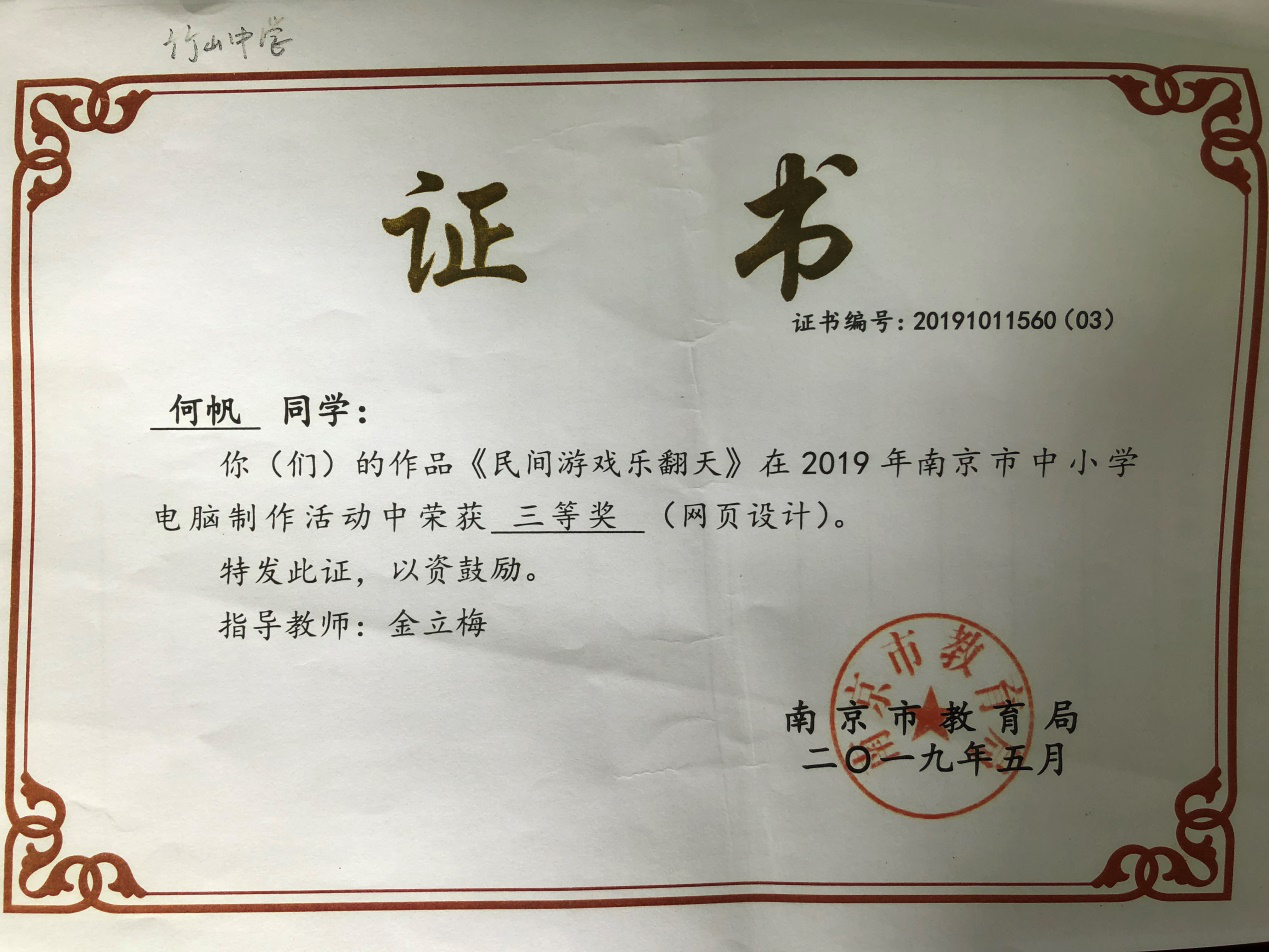 竹山中学
证书
证书编号：20191011560（03）
何帆 同学：
你（们）的作品《民间游戏乐翻天》在2019年南京市中小学
电脑制作活动中荣获 三等奖 （网页设计）。
特发此证，以资鼓励。
指导教师：金立梅
南京市教育局
南京市教育局
二〇一九年五月